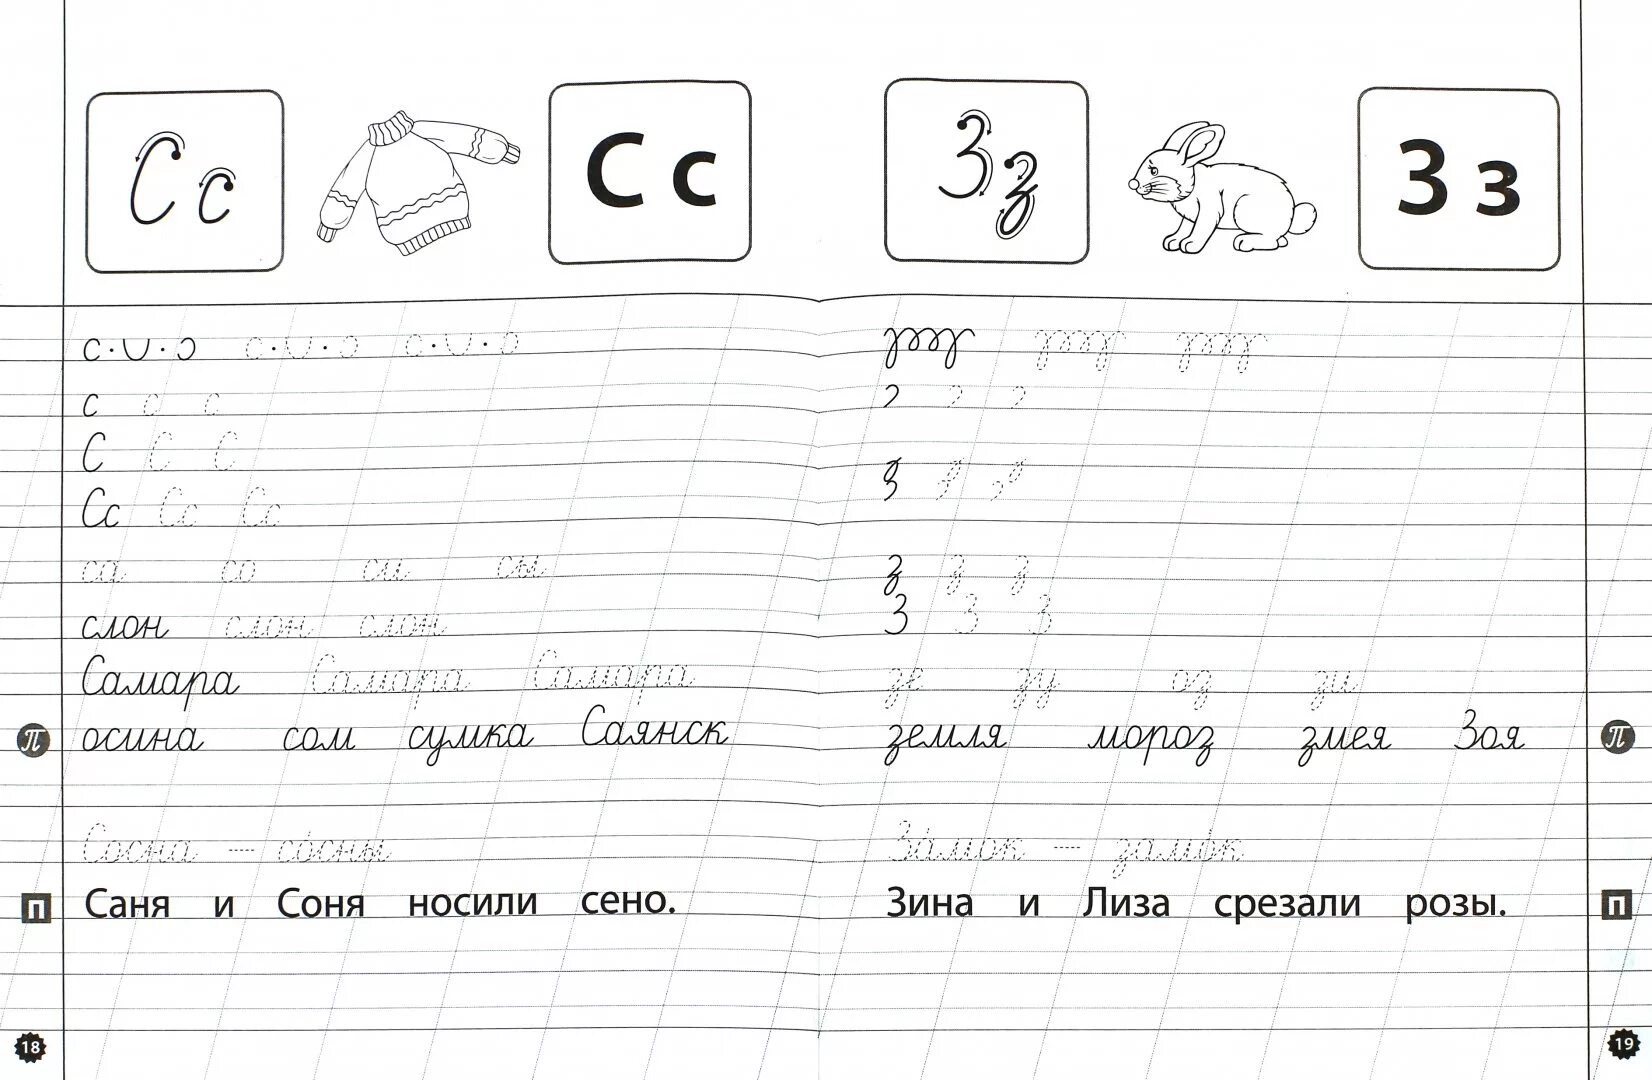 С с
С с
с . ∪ . ɔ с . ∪ . ɔ с . ∪ . ɔ
с с с
С С С
Сс Сс Сс
са со си сы
слон слон слон
Самара Самара Самара
П осина сом сумка Саянск
Сосна — со́сны
П Саня и Соня носили сено.
18
З з
З з
з з з
З З З
зе зу оз зи
земля мороз змея Зоя П
За́мок — замо́к
Зина и Лиза срезали розы. П
19